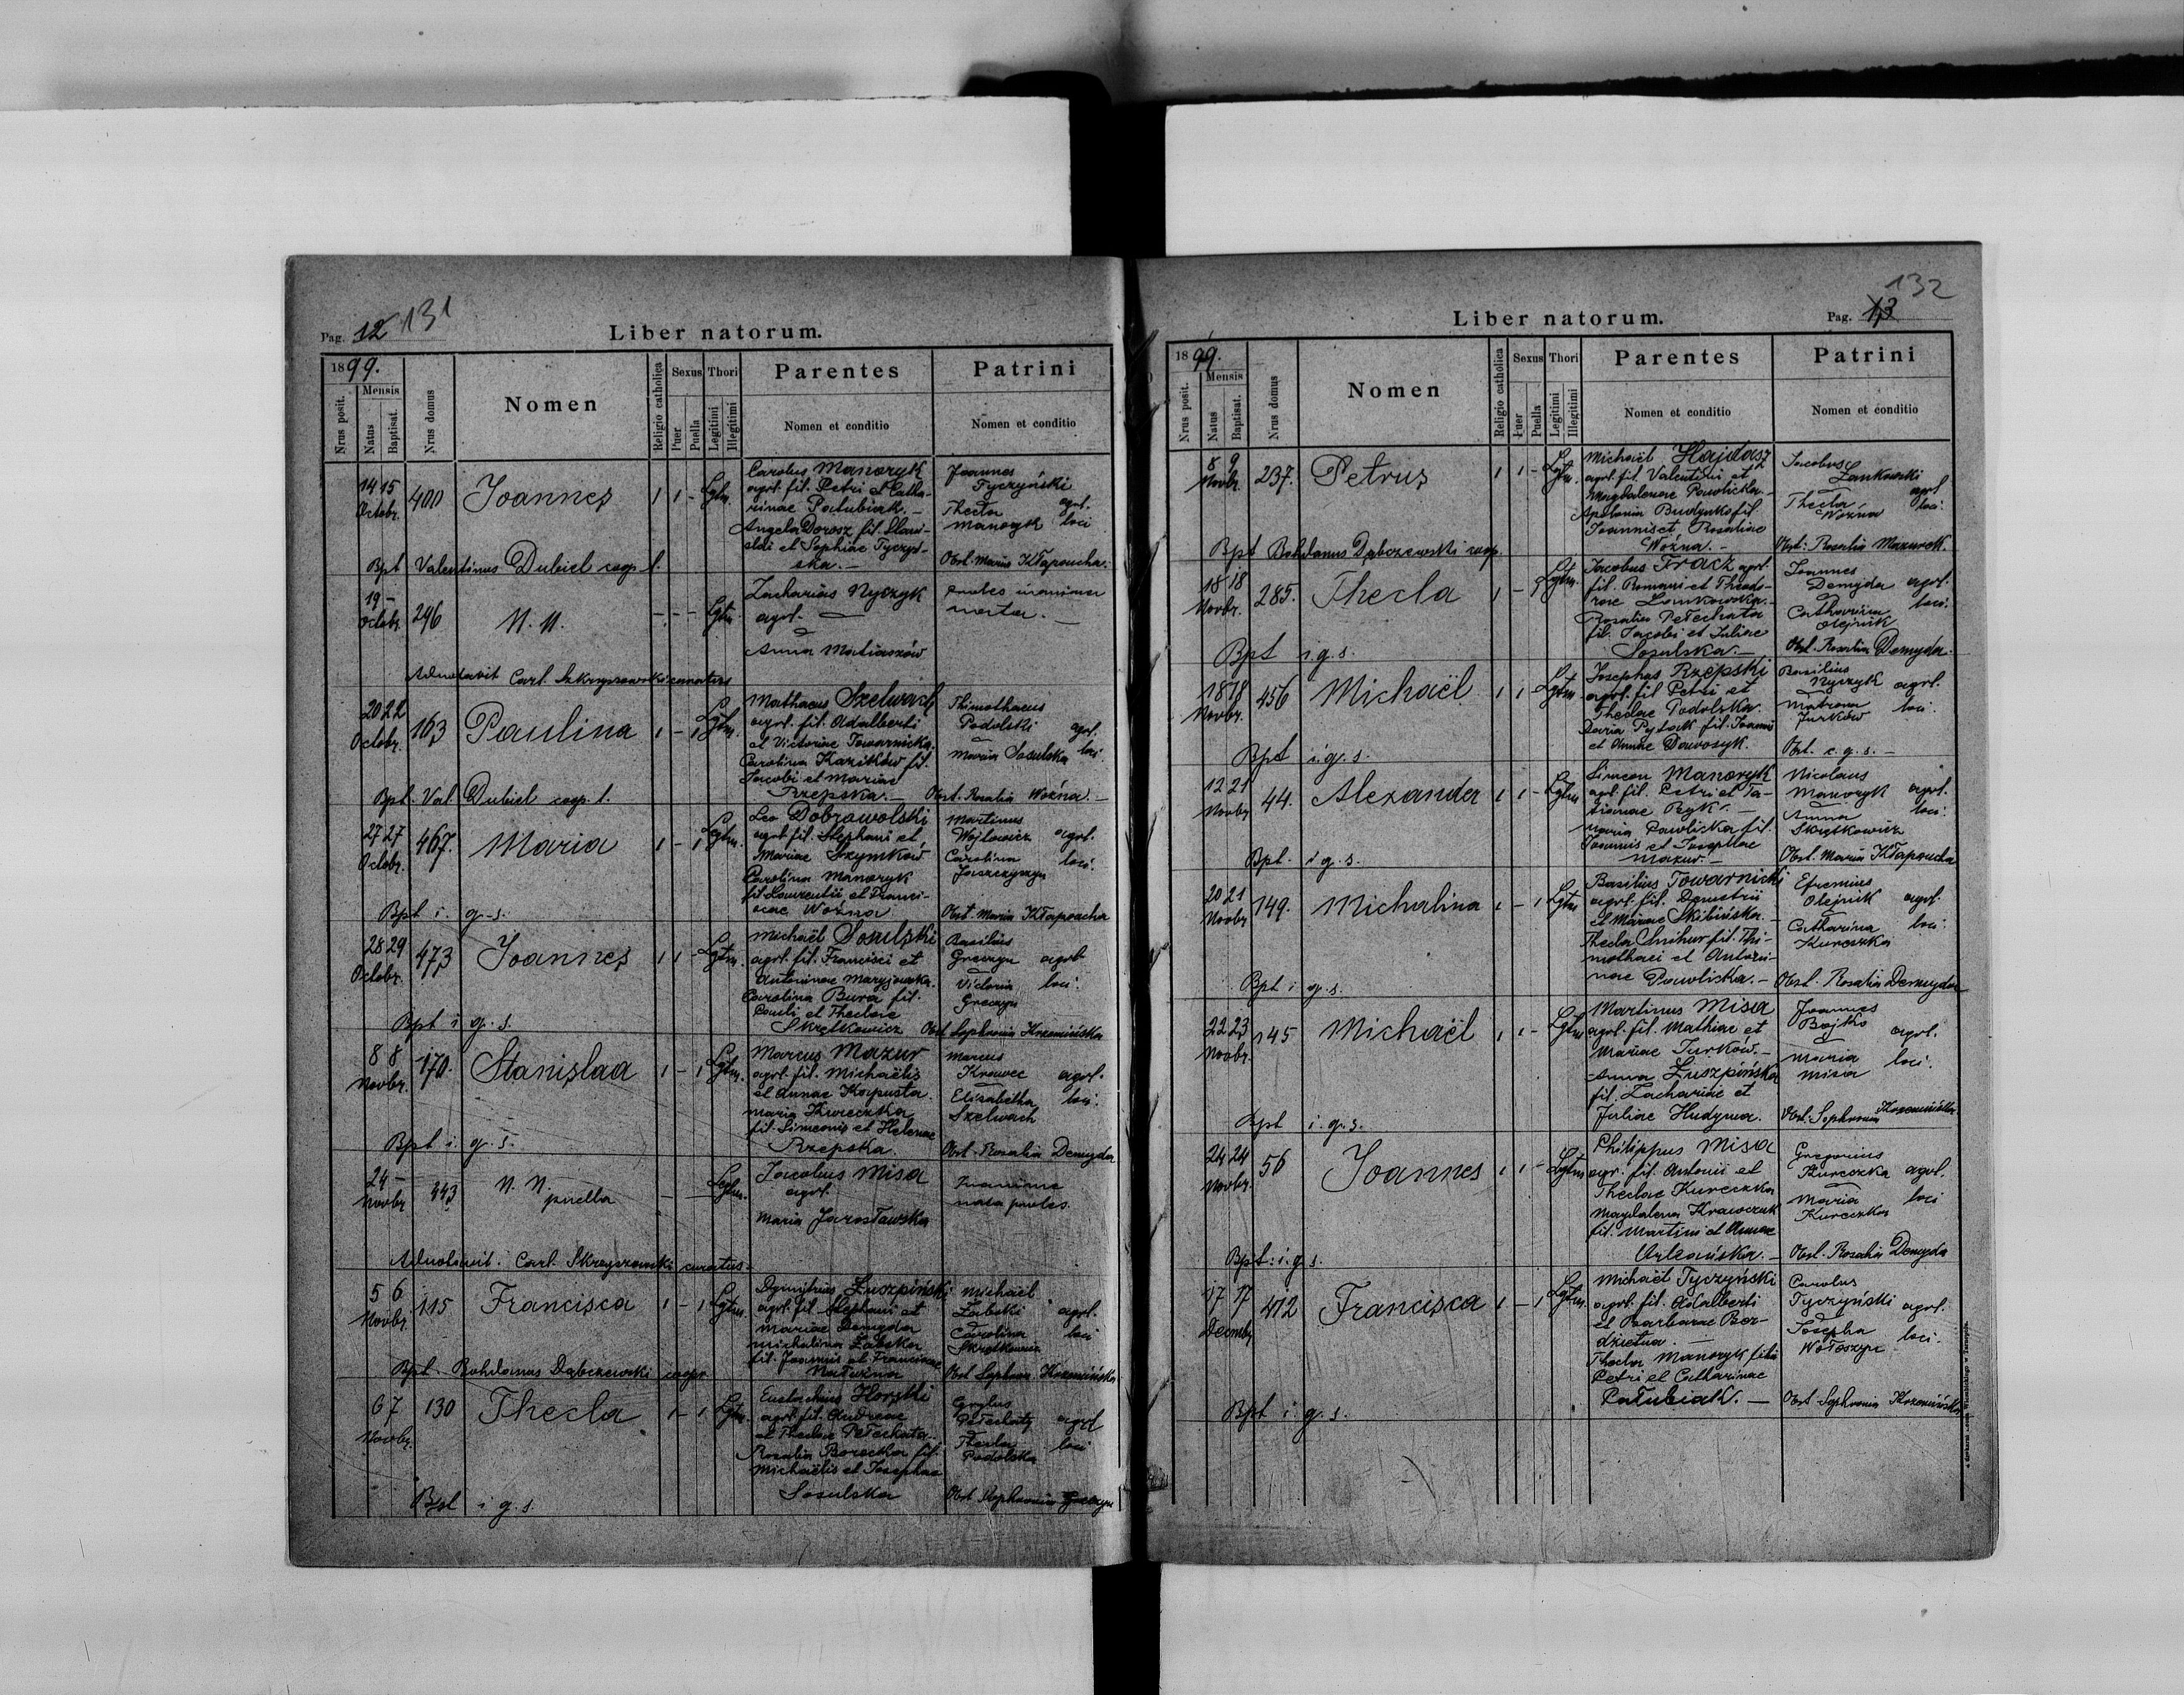 Pag. 12 131
Liber natorum.
1899.
Nrus posit.
Mensis
Natus
Baptisat.
Nrus domus
Nomen
Religio catholica
Sexus
Puer
Puella
Thori
Legitimi
Illegitimi
Parentes
Nomen et conditio
Patrini
Nomen et conditio
14 15 Octobr. 400 Joannes 1 1 - Lgtm.
Carolus Manoryk
agrl. fil. Petri et Catha-
rinae Patubiak. -
Angela Dorosz fil.
et Sophiae Tyczyń-
ska. -
Joannes
Tyczyński
Thecla agrl.
Manoryk loci
Obst. Maria Kłapoucha.
Bpt Valentinus Dubiel coop. l.
19 - Octobr. 246 N. N. - - - Lgtm.
Zacharias Nyczyk
agrl. -
Anna Matiaszów
proles inanimis
nata. -
Adnotavit Carl. Skrzyszowski curatus
20 22 Octobr. 163 Paulina 1 - 1 Lgtm.
Mathaeus Szelwach
agrl. fil. Adalberti
et Victoriae Towarnicka.
Carolina Kazików fil.
Jacobi et Mariae
Rzepska. -
Thimothaeus
Podolski agrl.
Maria Sosulska loci.
Obst. Rosalia Woźna. -
Bpt. Val. Dubiel coop. l.
27 27 Octobr. 467. Maria 1 - 1 Lgtm.
Leo Dobrawolski
agrl. fil. Stephani et
Mariae Szymków
Carolina Manoryk
fil. Laurentii et Franci-
scae Woźna
Martinus
Wojtowicz agrl.
Carolina loci.
Jaszczyszyn
Obst. Maria Kłapoucha
Bpt i. g. s.
28 29 Octobr. 473 Joannes 1 1 - Lgtm.
Michaël Sosulski
agrl. fil. Francisci et
Antoninae
Carolina Bura fil.
Pauli et Theclae
Skrętkowicz
Basilius
Greczyn agrl.
Victoria loci.
Greczyn
Obst. Sophronia Krzemińska
Bpt i. g. s.
8 8 Novbr. 170. Stanislaa 1 - 1 Lgtm.
Marcus Mazur
agrl. fil. Michaëlis
et Annae Kapusta.
Maria Kureczka
fil. Simeonis et Helenae
Rzepska.
Marcus
Krawec agrl.
Elisabetha loci.
Szelwach
Obst. Rosalia Demyda
Bpt i. g. s.
24 - Novbr 343 N. N. puella - - Lgtm.
Jacobus Misa
agrl.
Maria Jarosławska
Inanime
nata proles.
Adnotavit. Carl. Skrzyszowski curatus.
5 6 Novbr. 115 Francisca 1 - 1 Lgtm.
Dymitrius Łuszpiński
agrl. fil. Stephani et
Mariae Demyda
Michalina Żabska
fil. Joannis et Franciscae
Michaël
Żabski agrl.
Carolina loci
Skrętkowicz
Obst. Sophron. Krzemińska
Bpt. Bohdanus Dąbczewski coop.
6 7 Novbr. 130 Thecla 1 - 1 Lgtm.
Eustachius Horski
agrl. fil. Andreae
et Theclae Petechata.
Rosalia Borecka fil.
Michaëlis et Josephae
Sosulska
Petechaty agrl
Thecla loci
Podolska
Obst. Sophronia
Bpt i g. s.
132
Liber natorum.
Pag. 13
1899.
Nrus posit.
Mensis
Natus
Baptisat.
Nrus domus
Nomen
Religio catholica
Sexus
Puer
Puella
Thori
Legitimi
Illegitimi
Parentes
Nomen et conditio
Patrini
Nomen et conditio
8 9 Novbr. 237. Petrus 1 1 - Lgtm.
Michaël Hajdasz
agrl. fil. Valentini et
Magdalenae Pawlicka.
Apolonia Budynko fil.
Joannis et Rosaliae
Woźna. -
Jacobus
Lankowski
Thecla agrl
Woźna loci.
Obst: Rosalia Mazurek.
Bpt Bohdanus Dąbczewski coop.
18 18 Novbr. 285. Thecla 1 - 1 Lgtm.
Jacobus Tracz agrl.
fil. Romani et Theodo-
rae Lankowska.
Rosalia Petechata
fil. Jacobi et Juliae
Sosulska. -
Joannes
Demyda agrl.
Catharina loci.
Olejnik
Obst. Rosalia Demyda.
Bpt i. g. s.
18 18 Novbr. 456 Michaël 1 1 - Lgtm
Josephus Rzepski
agrl. fil Petri et
Theclae Podolska.
Daria Pytak fil. Joannis
et Annae Dawosyk.
Basilius
Nyczyk agrl.
Matrona loci.
Jurków
Obst. e. g. s. -
Bpt i. g. s.
12 21 Novbr 44. Alexander 1 1 - Lgtm
Simeon Manoryk
agrl. fil. Petri et Ta-
tianae Ryk.
Maria Pawlicka fil.
Joannis et Josephae
Mazur. -
Nicolaus
Manoryk agrl.
Anna loci.
Skrętkowicz
Obst. Maria Kłapoucha
Bpt. i. g. s.
20 21 Novbr 149. Michalina 1 - 1 Lgtm
Basilius Towarnicki
agrl. fil. Demetrii
et Mariae Skibińska.
Thecla Snihur fil. Thi-
mothaei et Antoni-
nae Pawlicka. -
Efremius
Olejnik agrl.
Catharina loci.
Kureczka
Obst. Rosalia Demyda
Bpt i g. s.
22 23 Novbr. 145 Michaël 1 1 - Lgtm
Martinus Misa
agrl. fil. Mathiae et
Mariae Jurków. -
Anna Łuszpińska
fil. Zachariae et
Juliae Hudyma.
Joannes
Bojko agrl.
Maria loci.
Misa
Obst: Sophronia Krzemińska.
Bpt i. g. s.
24 24 Novbr. 56 Joannes 1 1 - Lgtm
Philippus Misa
agr. fil. Antonii et
Theclae Kureczka
Magdalena Krawczuk
fil. Martini et Annae
Urleańska. -
Gregorius
Kureczka agrl.
Maria loci
Kureczka
Obst. Rosalia Demyda
Bpt: i. g. s.
17 17 Decembr 412 Francisca 1 - 1 Lgtm.
Michaël Tyczyński
agrl. fil. Adalberti
et Barbarae Ber-
dzietna. -
Thecla Manoryk filia
Petri et Catharinae
Patubiak. -
Carolus
Tyczyński agrl.
Josepha loci.
Wołoszyn
Obst. Sophronia Krzemińska
Bpt i. g. s.